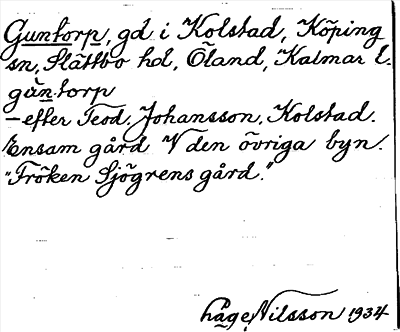 Guntorp, gd i Kolstad, Köping
sn, Slättbo hd, Öland, Kalmar l.
gùntorp
– efter Teod. Johansson, Kolstad.
Ensam gård V den övriga byn.
"Fröken Sjögrens gård."
håge Nilsson 1934